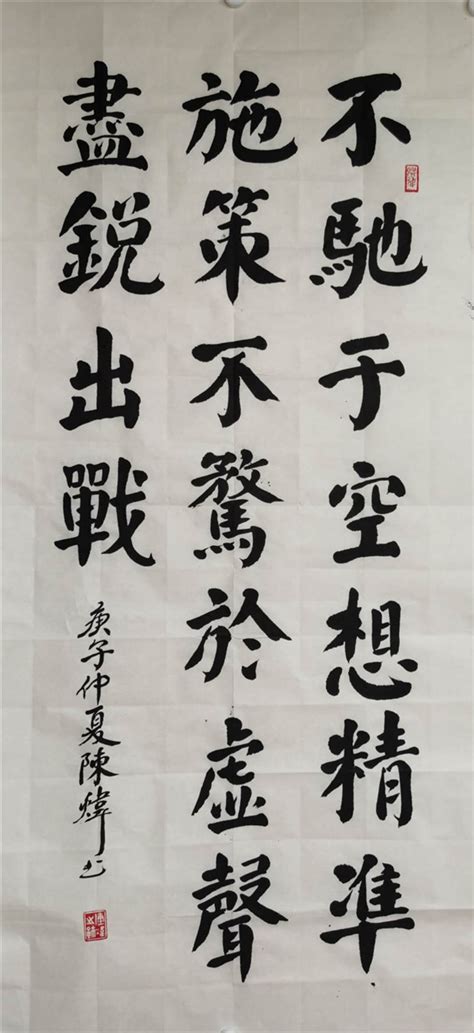 不馳于空想精準
施策不騖於虛聲
盡銳出戰
庚子仲夏陳煒书